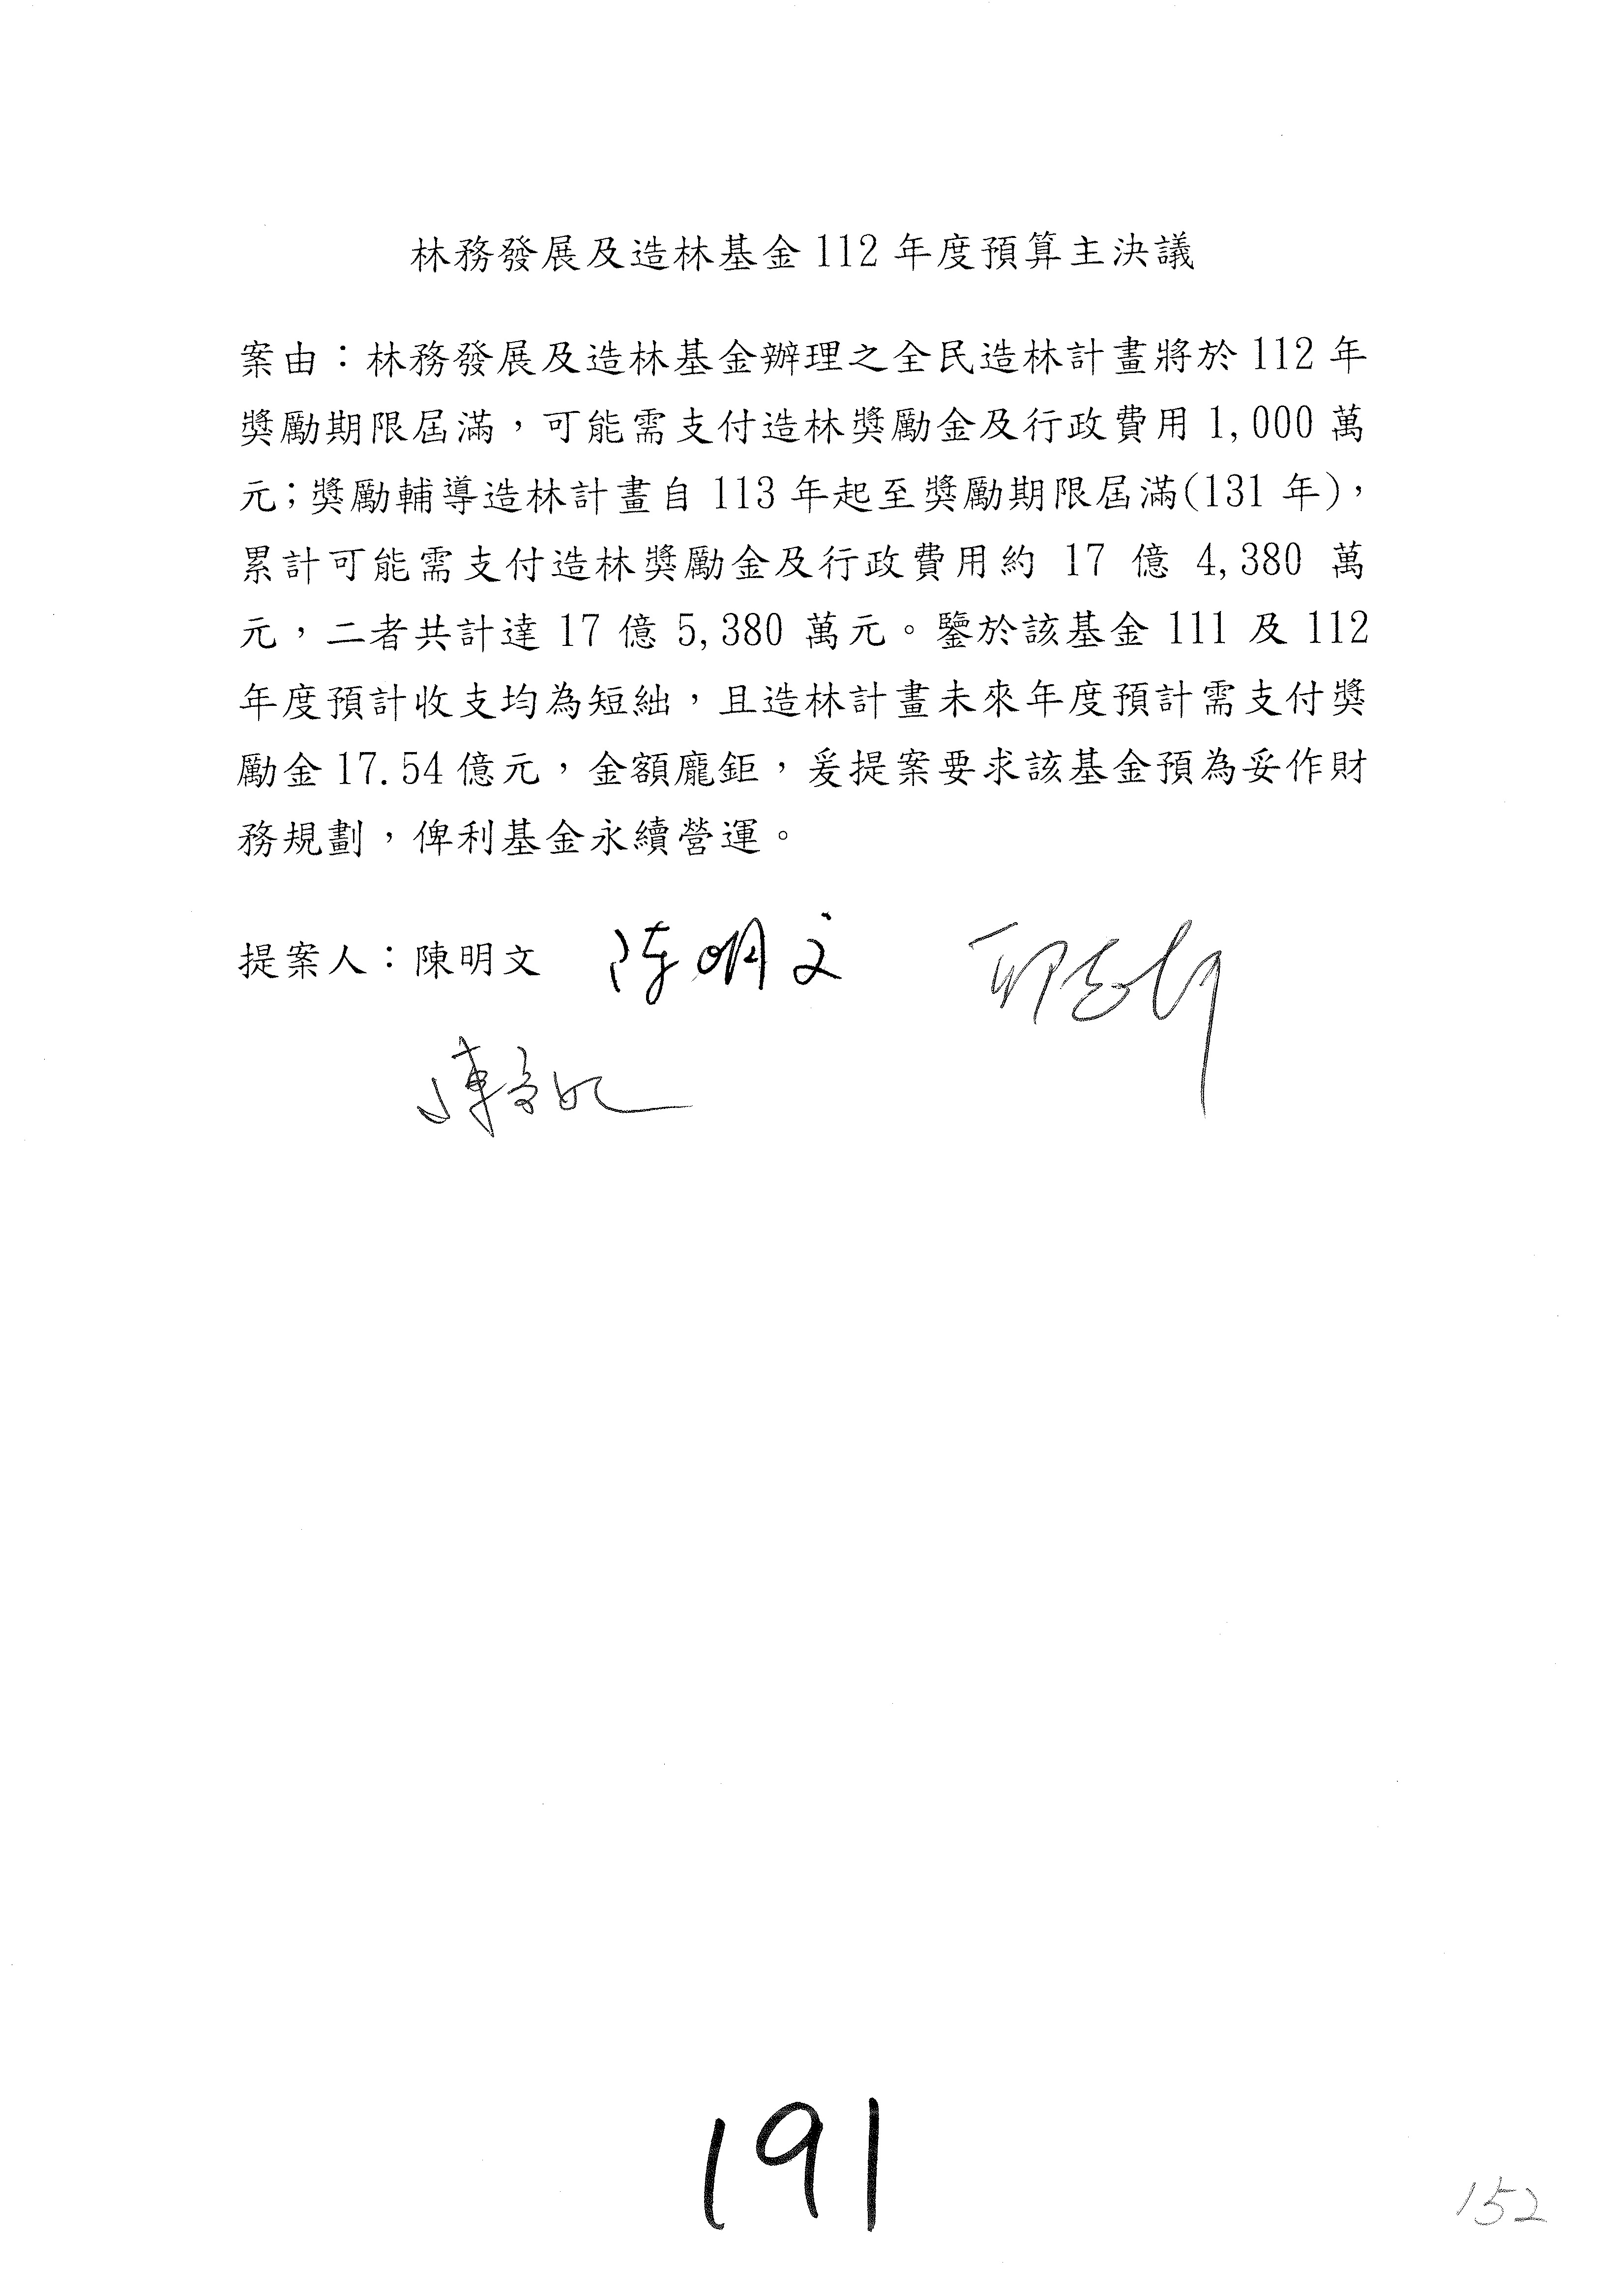 林務發展及造林基金 112 年度預算主決議
案由：林務發展及造林基金辦理之全民造林計畫將於 112 年
獎勵期限屆滿，可能需支付造林獎勵金及行政費用 1,000 萬
元；獎勵輔導造林計畫自 113 年起至獎勵期限屆滿(131 年)，
累計可能需支付造林獎勵金及行政費用約 17 億 4,380 萬
元，二者共計達 17 億 5,380 萬元。鑒於該基金 111 及 112
年度預計收支均為短絀，且造林計畫未來年度預計需支付獎
勵金 17.54 億元，金額龐鉅，爰提案要求該基金預為妥作財
務規劃，俾利基金永續營運。
提案人：陳明文 陳明文
191
152